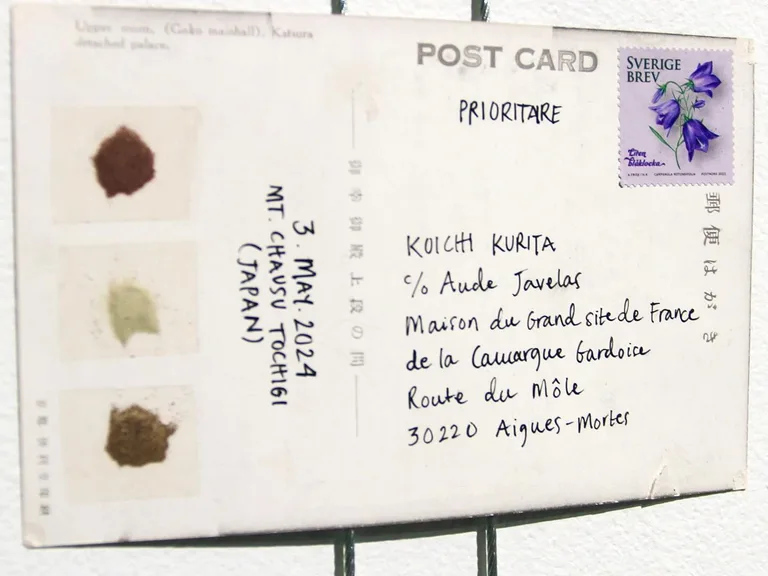 Upper room, (Goko mainhall), Katsura
detached palace.
POST CARD
PRIORITAIRE
SVERIGE
BREV
Liten
blåklocka
郵便はがき
御幸御殿上段の間
3. MAY. 2024
MT. CHAUSU TOCHIGI
(JAPAN)
KOICHI KURITA
c/o Aude Javelas
Maison du Grand site de France
de la Camargue Gardoise
Route du Môle
30220 Aigues-Mortes